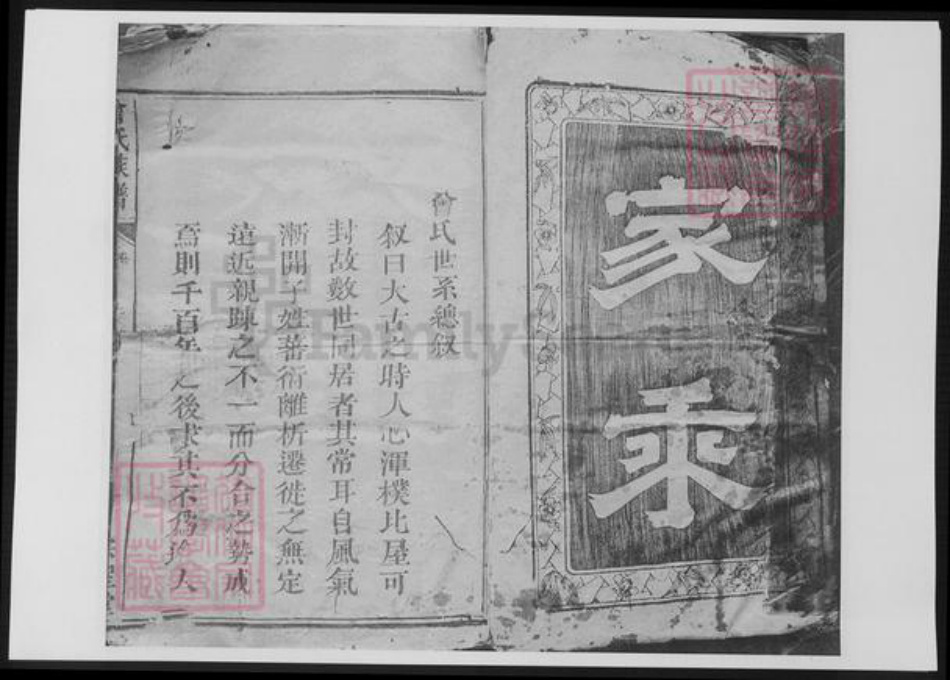 家乘
曾氏世系總叙
叙曰大古之時人心渾樸比屋可
封故数世同居者其常耳自風氣
漸開子姓蕃衍離析遷徙之無定
遠近親踈之不一而分合之勢成
焉則千百年之後求其不為途人
曾氏族譜
FamilySearch